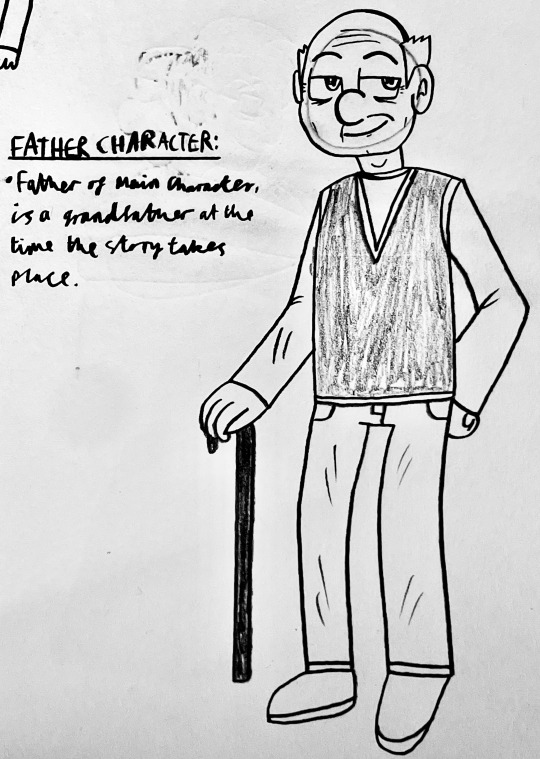 FATHER CHARACTER:
•Father of Main Character,
is a grandfather at the
time the story takes
place.